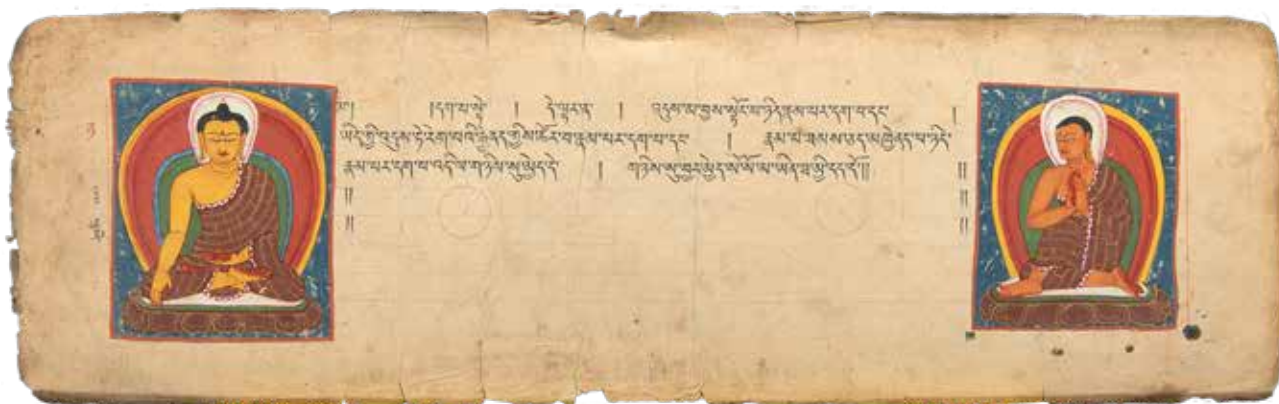 །དག་པ་སྟེ་ ། དེ་ལྟར་ན་ ། འདུས་མ་བྱས་སྟོང་པ་ཉིད་རྣམ་པར་དག་པ་དང་ །
ཡིད་ཀྱི་འདུས་ཏེ་རེག་པའི་རྐྱེནད་གྱིས་ཚོར་བ་རྣམ་པར་དག་པ་དང་ ། རྣམ་པ་ཐམས་ཅད་མཁྱེནད་པ་ཉིད་
རྣམ་པར་དག་པ་འདི་ལ་གཉིས་སུ་མྱེད་དེ་ ། གཉིས་སུ་བྱར་མྱེད་སོ་སོ་མ་ཡིན་ཐ་མྱི་དད་དོ།། །།
།། །།
།། །།